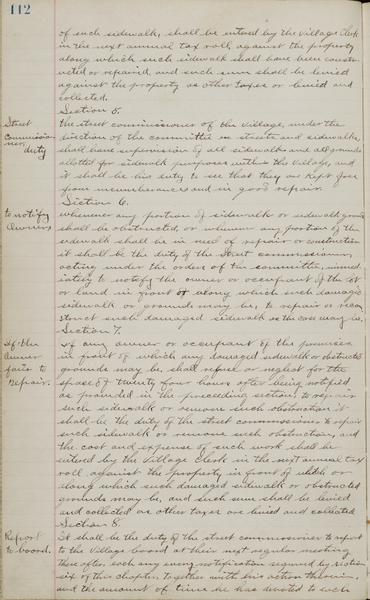 112
of such sidewalk, shall be entered by the Village Clerk
in the next annual tax roll, against the property
along which such sidewalk shall have been constr-
ucted or repaired, and such sum shall be levied
against the property as other taxes or levied and
collected.
Section 5.
Street
Commissio
ner,
duty
The street commissioner of the Village, under the
direction of the committee on streets and sidewalks,
shall have supervision of all sidewalks and all grounds
allotted for sidewalk purposes within the Village, and
it shall be his duty to see that they are kept free
from incumberances and in good repair.
Section 6.
to notify
Owners
whenever any portion of sidewalk or sidewalk grounds
shall be obstructed, or whenever any portion of the
sidewalk shall be in need of repair or construction
it shall be the duty of the street commissioner,
acting under the orders of the committee, immed-
iately to notify the owner or occupant of the lot
or land in front of or along which such damaged
sidewalk or grounds may be, to repair or recon
struct such damaged sidewalk as the case may be.
Section 7.
If the
owner
fails to
Repair.
If any owner or occupant of the premises
in front of which any damaged sidewalk or obstructed
grounds may be, shall refuse or neglect for the
space of twenty four hours after being notified
as provided in the preceeding section, to repair
such sidewalk or remove such obstruction it
shall be the duty of the street commissioner to repair
such sidewalk or remove such obstruction, and
the cost and expense of such work shall be
entered by the Village Clerk in the next annual tax
roll against the property in front of which or
along which such damaged sidewalk or obstructed
grounds may be, and such sum shall be levied
and collected as other taxes are levied and collected
Section 8.
Report
to board.
It shall be the duty of the street commissioner to report
to the Village board at their next regular meeting
there after, each any every notification required by section
six of this chapter, together with his action therein,
and the amount of time he has devoted to each